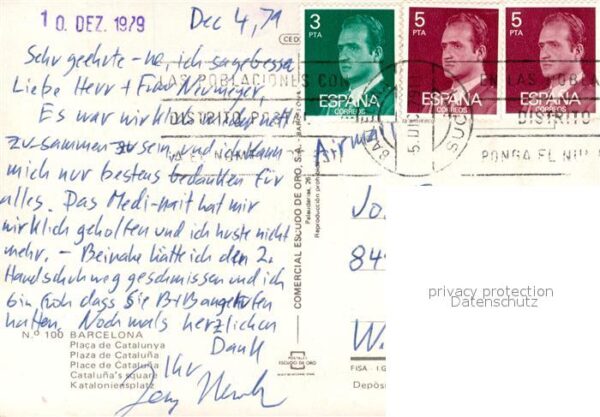 10. DEZ. 1979
Dec 4, 79
Sehr geehrte - ne, ich
Liebe Herr + Frau
Es war wirklich wieder nett
zu sammen zu sein und ich kann
mich nur bestens bedanken für
alles. Das Medi-nait hat mir
wirklich geholfen und ich huste nicht
mehr. - Beinahe hätte ich den 2.
Handschuh weg geschmissen und ich
bin froh dass Sie B+B angeboten
hatten. Nochmals herzlichen
Dank
Ihr
N.º 100 BARCELONA
Plaça de Catalunya
Plaza de Cataluña
Place de Cataluña
Cataluna's square
Katalonienplatz
COMERCIAL ESCUDO DE ORO, S.A.
Palaudarias, 26
BARCELONA
Reproducción prohibida
POSTALES
ESCUDO DE ORO
FISA - I G
Depós
3
PTA
ESPAÑA
CORREOS
5
PTA
ESPAÑA
CORREOS
5
PTA
ESPAÑA
CORREOS
LAS POBLACIONES CON
DISTRITO POSTAL
5 DIC
EN LAS POBLA
DISTRITO
PONGA EL NU
Airmail
Jo
849
W
privacy protection
Datenschutz